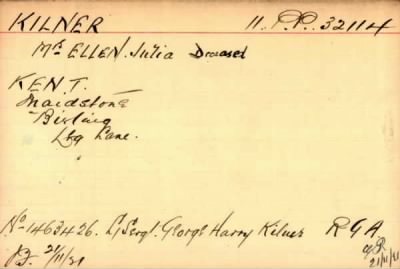 KILNER 11.P.P. 32114
Mrs ELLEN. Julia Deceased
KENT.
Maidstone
Birling
Lane.
No 1463426. L/Sergt. George Harry Kilner R G A
21/11/21
21/11/21